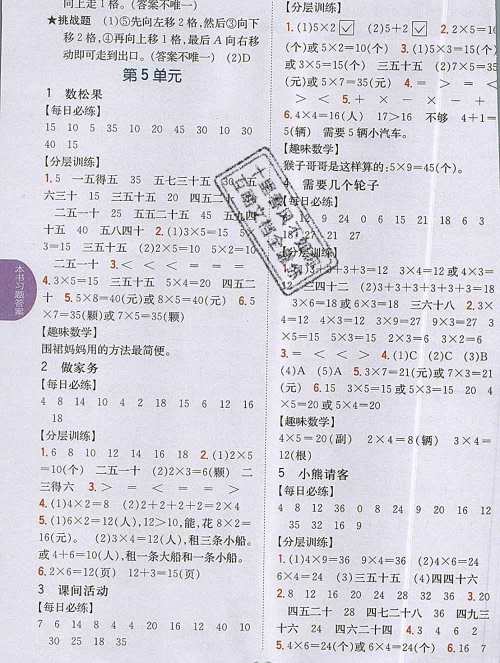 向上走1格。(答案不唯一)
★挑战题 (1)⑤先向左移2格,然后③向下
移2格,④再向上移1格,最后A向右移
动即可走到出口。(答案不唯一) (2)D
第5单元
1 数松果
【每日必练】
15 10 5 35 10 20 45 30 10 30
40 15
【分层训练】
1.5 一五得五 35 五七三十五 30 五
六三十 15 三五十五 20 四五二十
二五一十 25 五五二十五 45 五九四
十五 40 五八四十 2.(1)3×5=15 5×
3=15 三五十五 (2)5×2=10 2×5=10
二五一十 3.< < = = =
4.3×5=15 三五十五 5×4=20 四五二
十 5.5×8=40(元)或8×5=40(元) 6.5
×7=35(颗)或7×5=35(颗)
【趣味数学】
围裙妈妈用的方法最简便。
2 做家务
【每日必练】
4 8 14 10 4 2 18 15 6 12 16
18
【分层训练】
1.6 8 10 12 14 16 18 2.(1)2×5
=10(个) 二五一十 (2)2×3=6(颗) 二
三得六 3.> < = < = >
4.(1)4×2=8 (2)2+2+2+2=2×4
5.(1)6×2=12(人),12>10,能,花8×2=
16(元)。 (2)3×4=12(人),租三条小船。
或4+6=10(人),租一条大船和一条小船。
6.2×6=12(页) 12+3=15(页)
3 课间活动
【每日必练】
7 6 14 8 4 4 20 16 12 40 10
30 25 18 35
【分层训练】
1.(1)5×2 ☑ (2)5+2 ☑ 2.2×5=10
(个)或5×2=10(个) 3.(1)5×3=15(个)
或3×5=15(个) 三五十五 (2)7×5=35
(元)或5×7=35(元) 4.= > = <
> < < 5.+ × - × - +
6.4×4=16(人) 17>16 不够 4+1=
5(辆) 需要5辆小汽车。
【趣味数学】
猴子哥哥是这样算的:5×9=45(个)。
需要几个轮子
【每日必练】
9 24 0 6 15 21 18 6 3
27 21 27
【分层训练】
3+3+3=12 3×4=12或4×3=
12 三四十二 (2)3+3+3+3+3+3=18
3×6=18或6×3=18 三六十八 2.3×
4=12 4×3=12 3×9=27 9×3=27 3
×5=15 5×3=15 2×3=6 3×2=6
3.= < < > 4.(1)C (2)C (3)B
(4)A (5)A 5.3×7=21(元)或7×3=21
(元) 6.15 3×5=15或5×3=15 20 4
×5=20或5×4=20
【趣味数学】
4×5=20(副) 2×4=8(辆) 3×4=
12(根)
5 小熊请客
【每日必练】
4 8 12 36 0 8 24 9 20 16 12
35 32 16 9
【分层训练】
1.(1)4×9=36 9×4=36 (2)4×6=24
6×4=24 (3)三五十五 (4)四四十六
2.8 12 16 20 24 28 32 36 3.20
四五二十 28 四七二十八 36 四九三
十六 24 四六二十四 4.3 4 6 2
5.4×6=24(个)或6×4=24(个) 6.16 7
本书习题答案